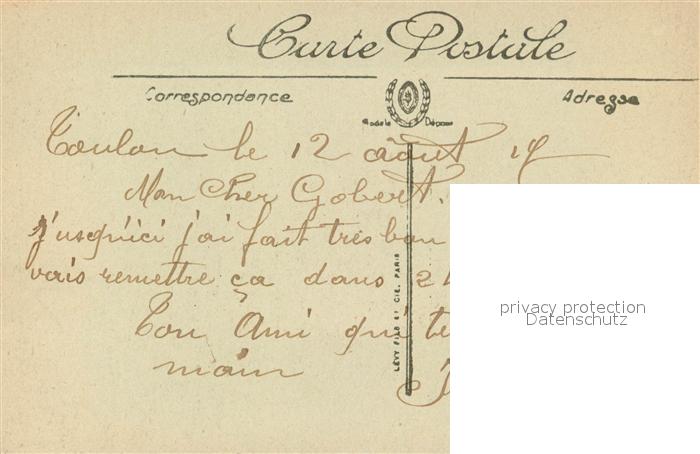 Carte Postale
Correspondance
Adresse
Modèle Déposé
Toulon le 12 août 19
Mon Cher Gobert.
j'usqu'ici j'ai fait très bon
vais remettre ça dans 2
Ton Ami qui te
main
LÉVY FILS ET CIE, PARIS
privacy protection
Datenschutz